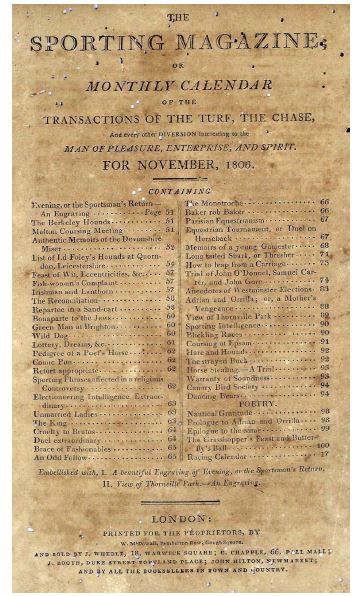 THE
SPORTING MAGAZINE,
OR
MONTHLY CALENDAR
OF THE
TRANSACTIONS OF THE TURF, THE CHASE,
And every other DIVERSION interesting to the
MAN OF PLEASURE, ENTERPRISE, AND SPIRIT.
FOR NOVEMBER, 1806.
CONTAINING
Evening, or the Sportsman's Return—
An Engraving Page 51
The Berkeley Hounds 51
Malton Coursing Meeting 51
Authentic Memoirs of the Devonshire
Miser 52
List of Ld Foley's Hounds at Quorn-
don, Leicestershire 54
Feast of Wit, Eccentricities, &c. 57
Fish-woman's Complaint 57
Irishman and Lanthorn 57
The Reconciliation 58
Repartee in a Sand-cart 58
Bonaparte to the Jews 60
Green Man at Brighton 60
Wild Dog 60
Lottery, Dreams, &c. 61
Pedigree of a Poet's Horse 62
Comic Pun 62
Retort appropriate 62
Sporting Phrases affected in a religious
Controversy 62
Electioneering Intelligence Extraor-
dinary 63
Unmarried Ladies 63
The King 63
Cruelty to Brutes 64
Duel extraordinary 64
Brace of Fashionables 65
An Odd Fellow 65
The Monotroche 66
Baker rob Baker 66
Parisian Equestrianism 67
Equestrian Tournament, or Duel on
Horseback 67
Memoirs of a young Gamester 68
Long tailed Shark, or Thresher 74
How to leap from a Carriage 75
Trial of John O'Donnel, Samuel Car-
ter, and John Gore 79
Anecdotes of Westminster Elections 83
Adrian and Orrila; or, a Mother's
Vengeance 88
View of Thornville Park 89
Sporting Intelligence 90
Blickling Races 90
Coursing at Epsom 91
Hare and Hounds 92
The strayed Duck 92
Horse Stealing—A Trial 93
Warranty of Soundness 93
Canary Bird Society 94
Dancing Bears 94
POETRY.
Nautical Gratitude 98
Prologue to Adrian and Orrilla 98
Epilogue to the same 99
The Grasshopper's Feast and Butter-
fly's Ball 100
Racing Calendar 17
Embellished with, I. A beautiful Engraving of Evening, or the Sportsman's Return.
II. View of Thornville Park.—An Engraving.
LONDON:
PRINTED FOR THE PROPRIETORS, BY
W. McDowall, Pemberton Row, Gough Square,
AND SOLD BY J. WHEBLE, 18, WARWICK SQUARE; C. CHAPPLE, 66, PALL MALL;
J. BOOTH, DUKE STREET PORTLAND PLACE; JOHN HILTON, NEWMARKET;
AND BY ALL THE BOOKSELLERS IN TOWN AND COUNTRY.